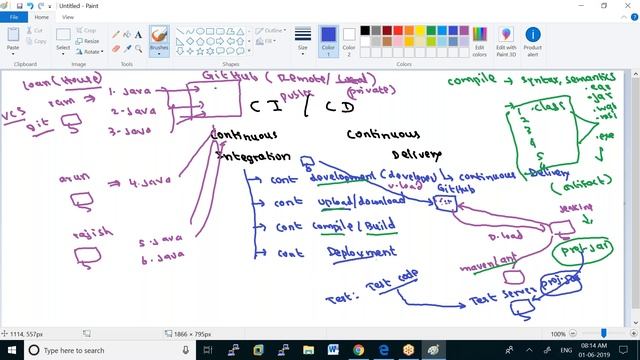 Untitled - Paint
File Home View
Paste
Cut
Copy
Clipboard
Select
Crop
Resize
Rotate
Image
Brushes
Tools
Shapes
Outline
Fill
Size
Color 1
Color 2
Colors
Edit colors
Edit with Paint 3D
Product alert
loan (House)
GitHub (Remote/
push (private)
compile → syntax, semantics
ram ⇒ 1. Java
.ear
.jar
.war
VCS
2. Java
CI / CD
.class
1
2
3
4
5
git
3. Java
.exe
Continuous
Continuous
Integration
Delivery
arun ⇒ 4. Java
cont development (developer) ↳ continuous Delivery
(artifact)
GitHub
cont upload/download
jenkins
rajish
cont compile / Build
D.load
5. Java
6. Java
cont Deployment
maven/ant
Test: Test code
Test server
1114, 557px
1866 × 795px
100%
Type here to search
ENG
08:14 AM
01-06-2019